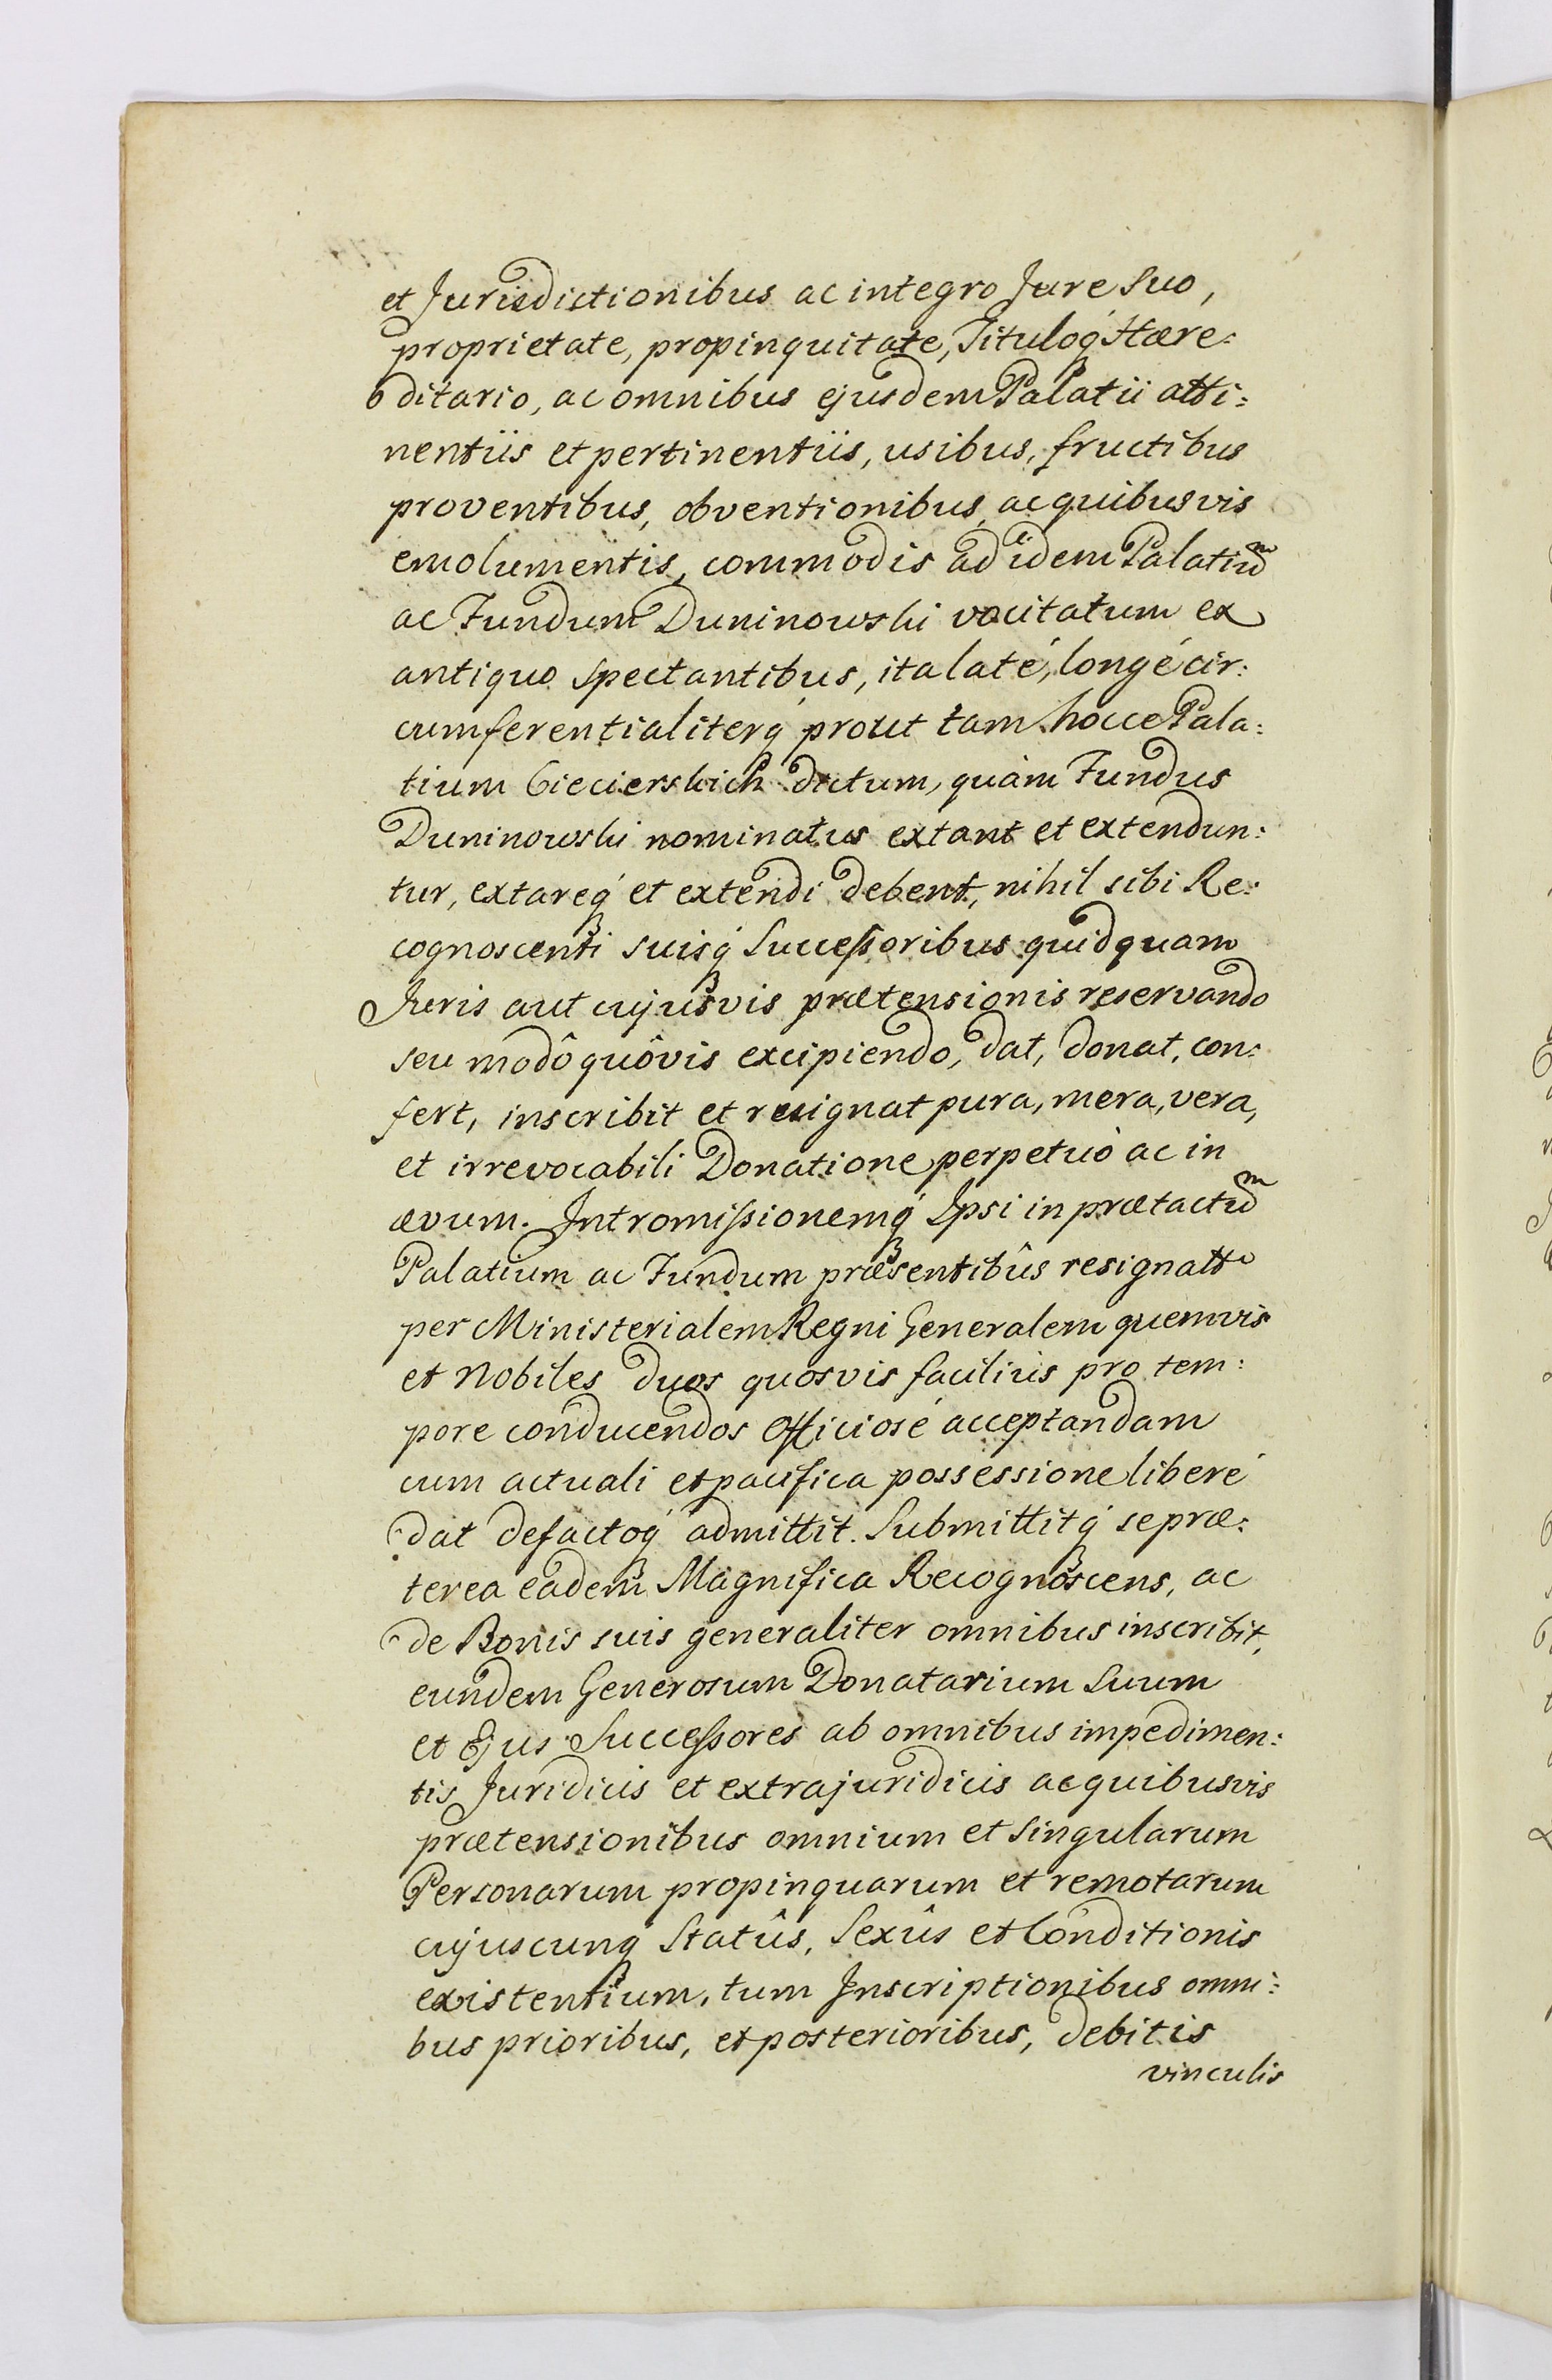 et Jurisdictionibus ac integro Jure Suo,
proprietate, propinquitate, Tituloq́ Hære:
ditario, ac omnibus ejusdem Palatii atti:
nentiis et pertinentiis, usibus, fructibus
proventibus, obventionibus, ac quibusvis
emolumentis, commodis ad idem Palatiũ
ac Fundum Duninowski vocitatum ex
antiquo spectantibus, ita laté, longé cir:
cumferentialiterq́ prout tam hocce Pala:
tium Giecierskich dictum, quàm Fundus
Duninowski nominatus extant et extendun:
tur, extareq́ et extendi debent, nihil sibi Re:
cognoscenti suisq́ Successoribus quidquam
Juris aut cujusvis prætensionis reservando
seu modô quôvis excipiendo, dat, donat, con:
fert, inscribit et resignat pura, mera, vera,
et irrevocabili Donatione perpetuò ac in
ævum. Intromissionemq́ Ipsi in prætactũ
Palatium ac Fundum præsentibûs resignatt
per Ministerialem Regni Generalem quemvis
et Nobiles duos quosvis faciliùs pro tem:
pore conducendos officiosé acceptandam
cum actuali et pacifica possessione liberé
dat defactoq́ admittit. Submittitq́ se præ:
terea eadem Magnifica Recognoscens, ac
de Bonis suis generaliter omnibus inscribit,
eundem Generosum Donatarium Suum
et Ejus Successores ab omnibus impedimen:
tis Juridicis et extrajuridicis ac quibusvis
prætensionibus omnium et Singularum
Personarum propinquarum et remotarum
cujuscunq́ Statûs, Sexûs et Conditionis
existentium, tum Inscriptionibus omni:
bus prioribus, et posterioribus, debitis
vinculis